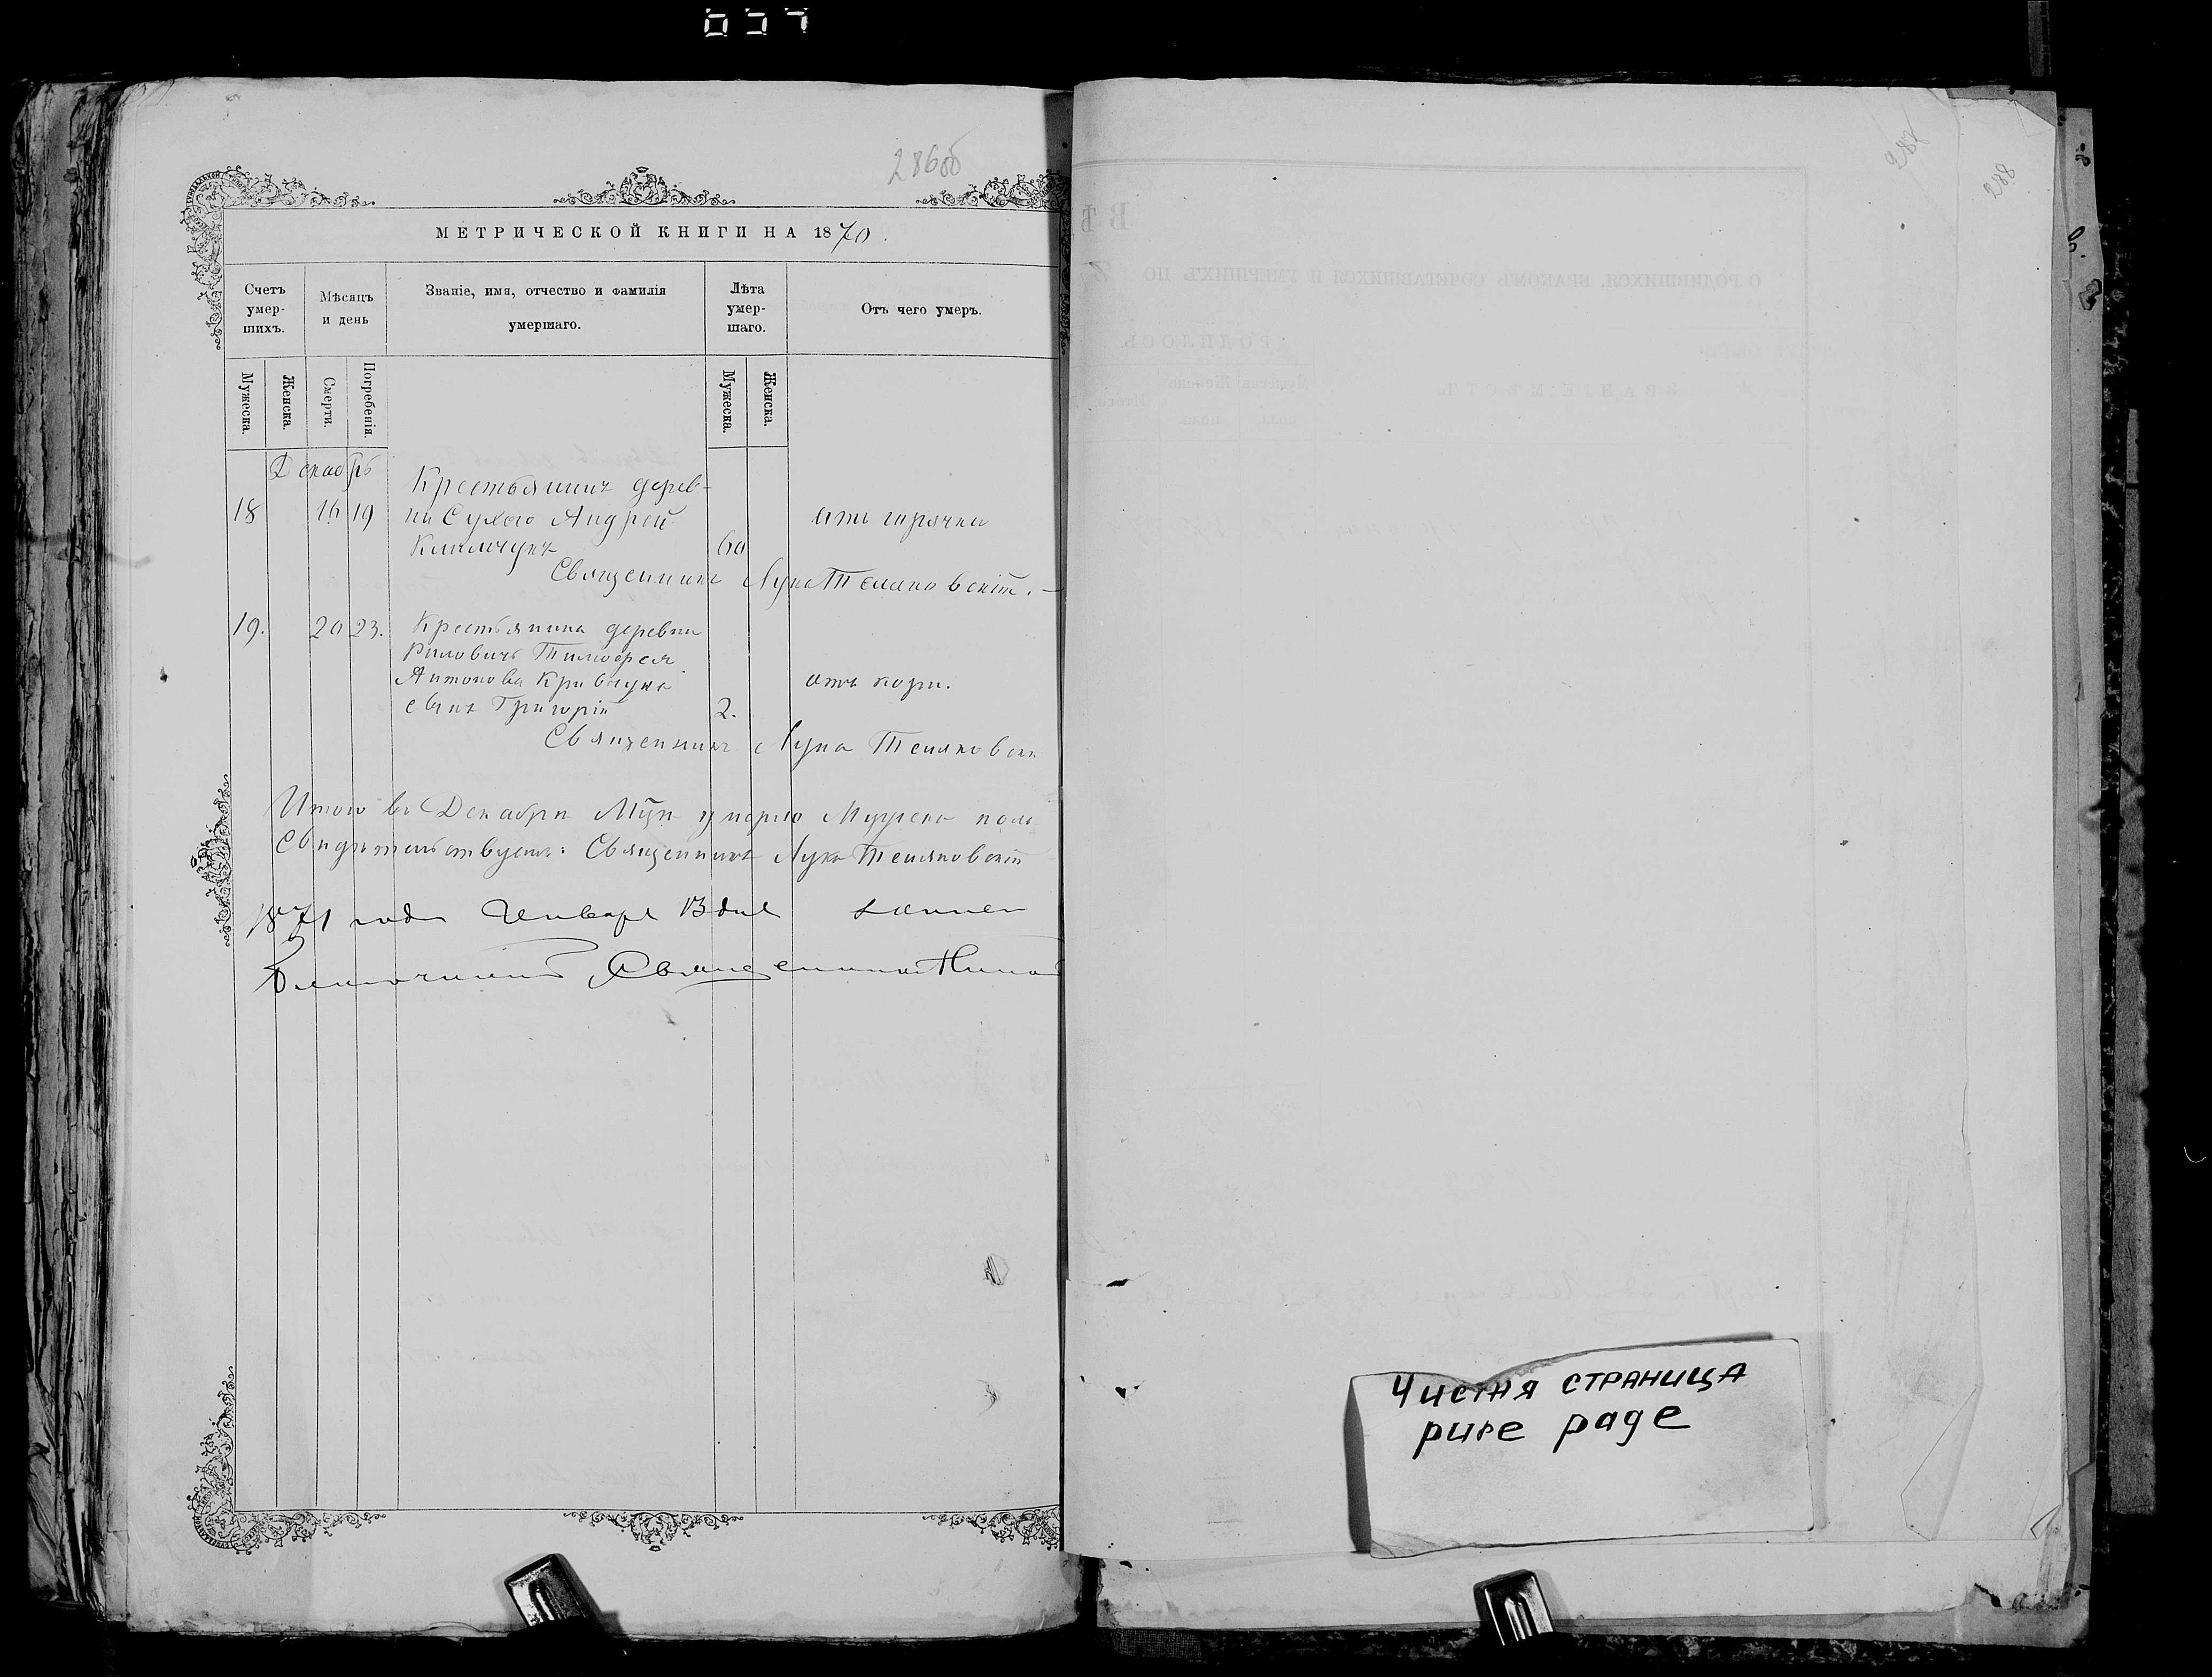 286об
МЕТРИЧЕСКОЙ КНИГИ НА 1870.
Счетъ умер-шихъ.
Мѣсяцъ и день
Званіе, имя, отчество и фамилія умершаго.
Лѣта умер-шаго.
Отъ чего умеръ.
Мужеска.
Женска.
Смерти.
Погребенія.
Мужеска.
Женска.
Декабрь
Крестьянинъ дерев-
18 16 19 ни Сухого Андрей отъ горячки
60
Священникъ Лука Теляковскій.
19. 20 23. Крестьянина деревни
Тимофея
Антонова Кривчука отъ кори.
сынъ Григорій 2.
Священникъ Лука Теляковскі
Итого въ Декабрѣ Мцѣ умерло Мужеска пола
Свидѣтельствуетъ: Священникъ Лука Теляковскій
1871 года Января 13 дня
Благочинный Священникъ
287
288
Чистая страница
pure page